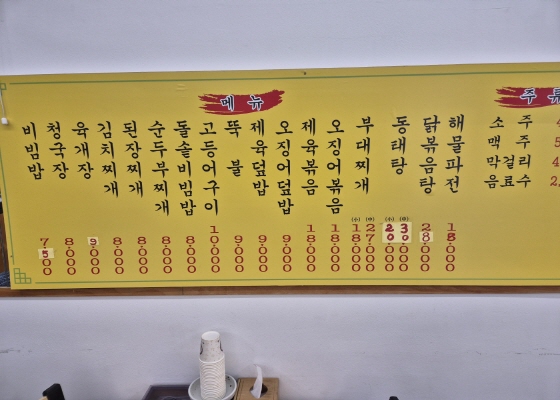 메뉴
비빔밥 7500
청국장 8000
육개장 9000
김치찌개 8000
된장찌개 8000
순두부찌개 8000
돌솥비빔밥 8000
고등어구이 10000
뚝불 9000
제육덮밥 9000
오징어덮밥 9000
제육볶음 18000
오징어볶음 18000
부대찌개 (小) 18000 (中) 27000
동태탕 (小) 20000 (中) 30000
닭볶음탕 28000
해물파전 18000
주류
소주
맥주
막걸리
음료수